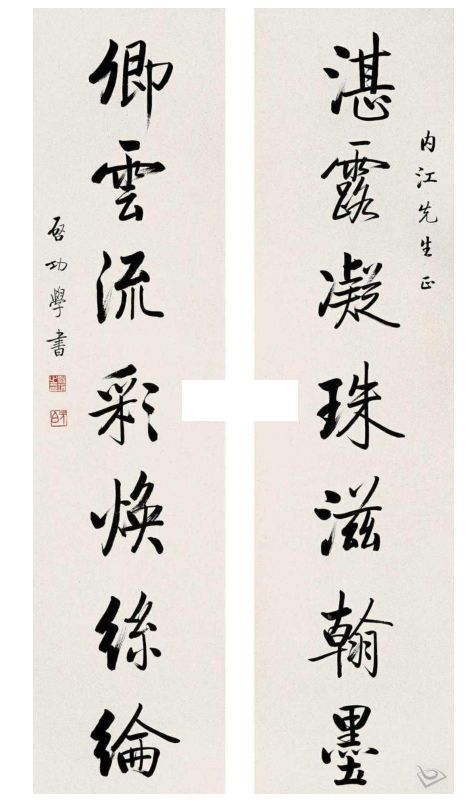 内江先生正
湛露凝珠滋翰墨
卿雲流彩焕絲綸
啓功學書